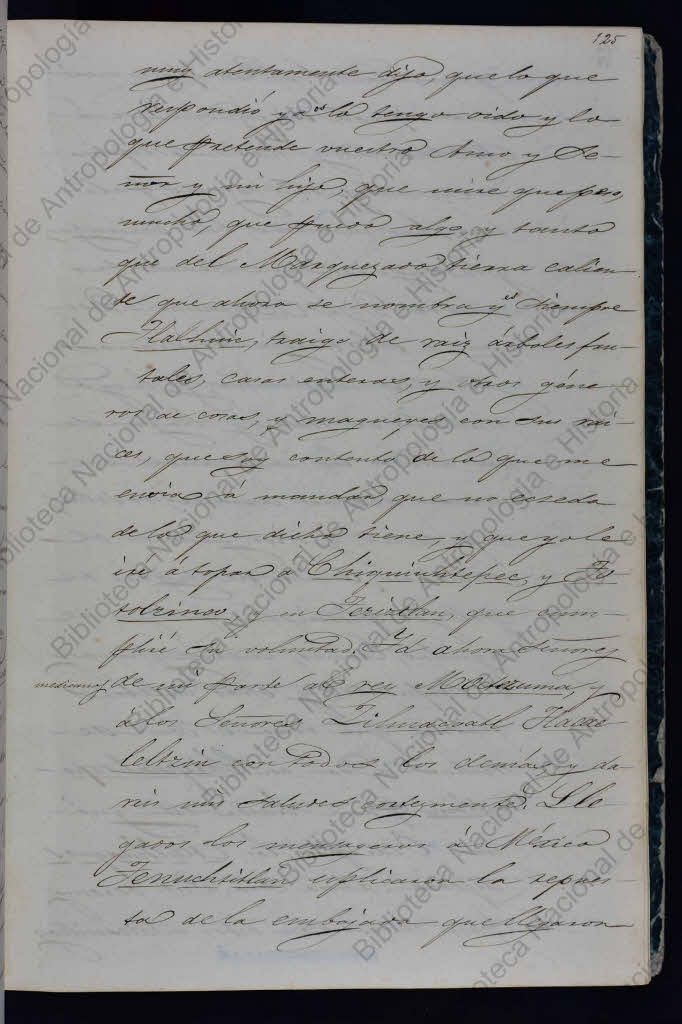 125
muy atentamente dijo, que lo que
respondió ya es lo tengo oido y lo
que pretende vuestro Amo y Se-
ñor y mi hijo, que mire que pes,
mucho, que puedo algo, y tanto
que del Marquezado tierra calien-
te que ahora se nombra y es siempre
Tlalhuic, traigo de raiz árboles fru-
tales, casas enteras, y otros géne-
ros de cosas, y magueyes con sus rai-
ces, que soy contento de lo que me
envia á mandar, que no esceda
de lo que dicho tiene, y que yo le
ire á topar á Chiquiuhtepec, y
tolzinco y en Tezizttlan, que cum-
plire su voluntad. Yd ahora Señores
de mi parte al rey Moctezuma, y
á los Señores Zilmacoatl Tlacae-
leltzin con todos los demás y da-
reis mis saludes cortezmente. Lle
gados los mensageros á México
Tenuchtitlan esplicaron la repues-
ta de la embajada que llevaron
Biblioteca Nacional de Antropología e Historia